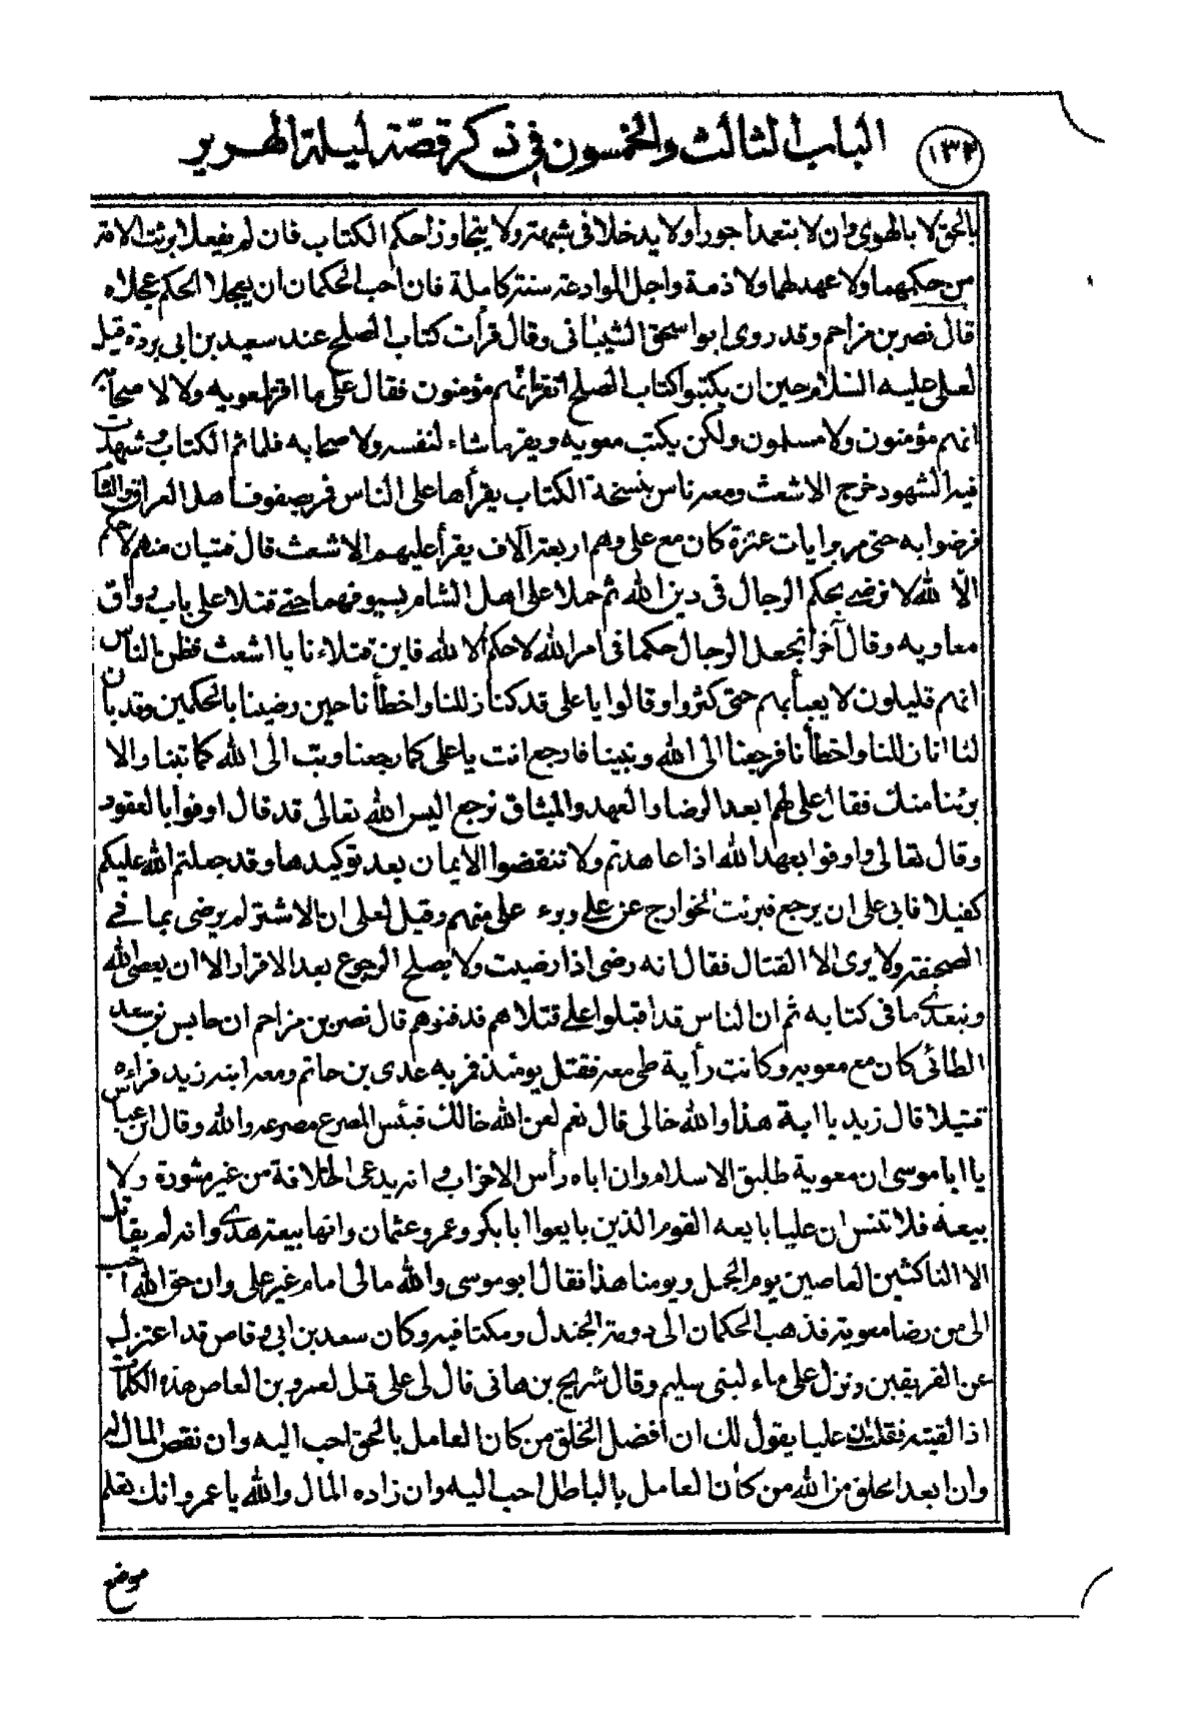 الباب الثالث والخمسون في ذكر قصة ليلة الهرير
١٣٢
بالحق لا بالهوى وان لا يتعمدا جورا ولا يدخلا في شبهة ولا يتجاوزا حكم الكتاب فان لم يفعلا برئت الامة
من حكمهما ولا عهد لهما ولا ذمة واجل الموادعة سنة كاملة فان احب الحكمان ان يعجلا الحكم عجلاه
قال نصر بن مزاحم وقد روى ابو اسحق الشيباني وقال قرأت كتاب الصلح عند سعيد بن ابي بردة قيل
لعلي عليه السلام حين ان يكتبوا كتاب الصلح اتقر انهم مؤمنون فقال علي ما اقر لمعويه ولا لاصحابه
انهم مؤمنون ولا مسلمون ولكن يكتب معويه ويقر ما شاء لنفسه ولاصحابه فلما تم الكتاب وشهدت
فيه الشهود خرج الاشعث ومعه ناس بنسخة الكتاب يقرأها على الناس فمر بصفوف اهل العراق والشام
فرضوا به حتى مر برايات عنزة كان مع علي وهم اربعة آلاف يقرأ عليهم الاشعث قال فتيان منهم لا حكم
الّا لله لا نرضى بحكم الرجال في دين الله ثم حملا على اهل الشام بسيوفهما حتى قتلا على باب رواق
معاويه وقال آخر انجعل الرجال حكما في امر الله لا حكم الا لله فاين قتلاءنا يا اشعث فظن الناس
انهم قليلون لا يعبأ بهم حتى كثروا وقالوا يا علي قد كنا زللنا واخطأنا حين رضينا بالحكمين وقد بان
لنا انا زللنا واخطأنا فرجعنا الى الله وتبينا فارجع انت يا علي كما رجعنا وتب الى الله كما تبنا والا
برئنا منك فقال علي لهم ابعد الرضا والعهد والميثاق نرجع اليس الله تعالى قد قال اوفوا بالعقود
وقال تعالى واوفوا بعهد الله اذا عاهدتم ولا تنقضوا الايمان بعد توكيدها وقد جعلتم الله عليكم
كفيلا فابى علي ان يرجع فبرئت الخوارج عن علي وبرء علي منهم وقيل لعلي ان الاشتر لم يرضى بما في
الصحيفة ولا يرى الا القتال فقال انه رضي اذا رضيت ولا يصلح الرجوع بعد الاقرار الا ان يعصى الله
ويتعدى ما في كتابه ثم ان الناس قد اقبلوا على قتلاهم فدفنوهم قال نصر بن مزاحم ان حابس بن سعد
الطائي كان مع معويه وكانت رأية طي معه فقتل يومئذ فمر به عدي بن حاتم ومعه ابنه زيد فراءه
قتيلا قال زيد يا ابة هذا والله خالي قال نعم لعن الله خالك فبئس المصرع مصرعه والله وقال ابن عباس
يا ابا موسى ان معوية طليق الاسلام وان اباه رأس الاحزاب وانه يدعي الخلافة من غير مشورة ولا
بيعة فلا تنس ان عليا بايعه القوم الذين بايعوا ابابكر وعمر وعثمان وانها بيعة هدى وانه لم يقاتل
الا الناكثين العاصين يوم الجمل ويومنا هذا فقال ابو موسى والله مالي امام غير علي وان حق الله احب
الي من رضا معوية فذهب الحكمان الى دومة الجندل ومكثا فيه وكان سعد بن ابي وقاص قد اعتزل
عن الفريقين ونزل على ماء لبني سليم وقال شريح بن هاني قال لي علي قل لعمرو بن العاص هذه الكلمات
اذا لقيته فقل ان عليا يقول لك ان افضل الخلق من كان العامل بالحق احب اليه وان نقص المال
وان ابعد الخلق من الله من كان العامل بالباطل احب اليه وان زاده المال والله يا عمرو انك تعلم
موضع